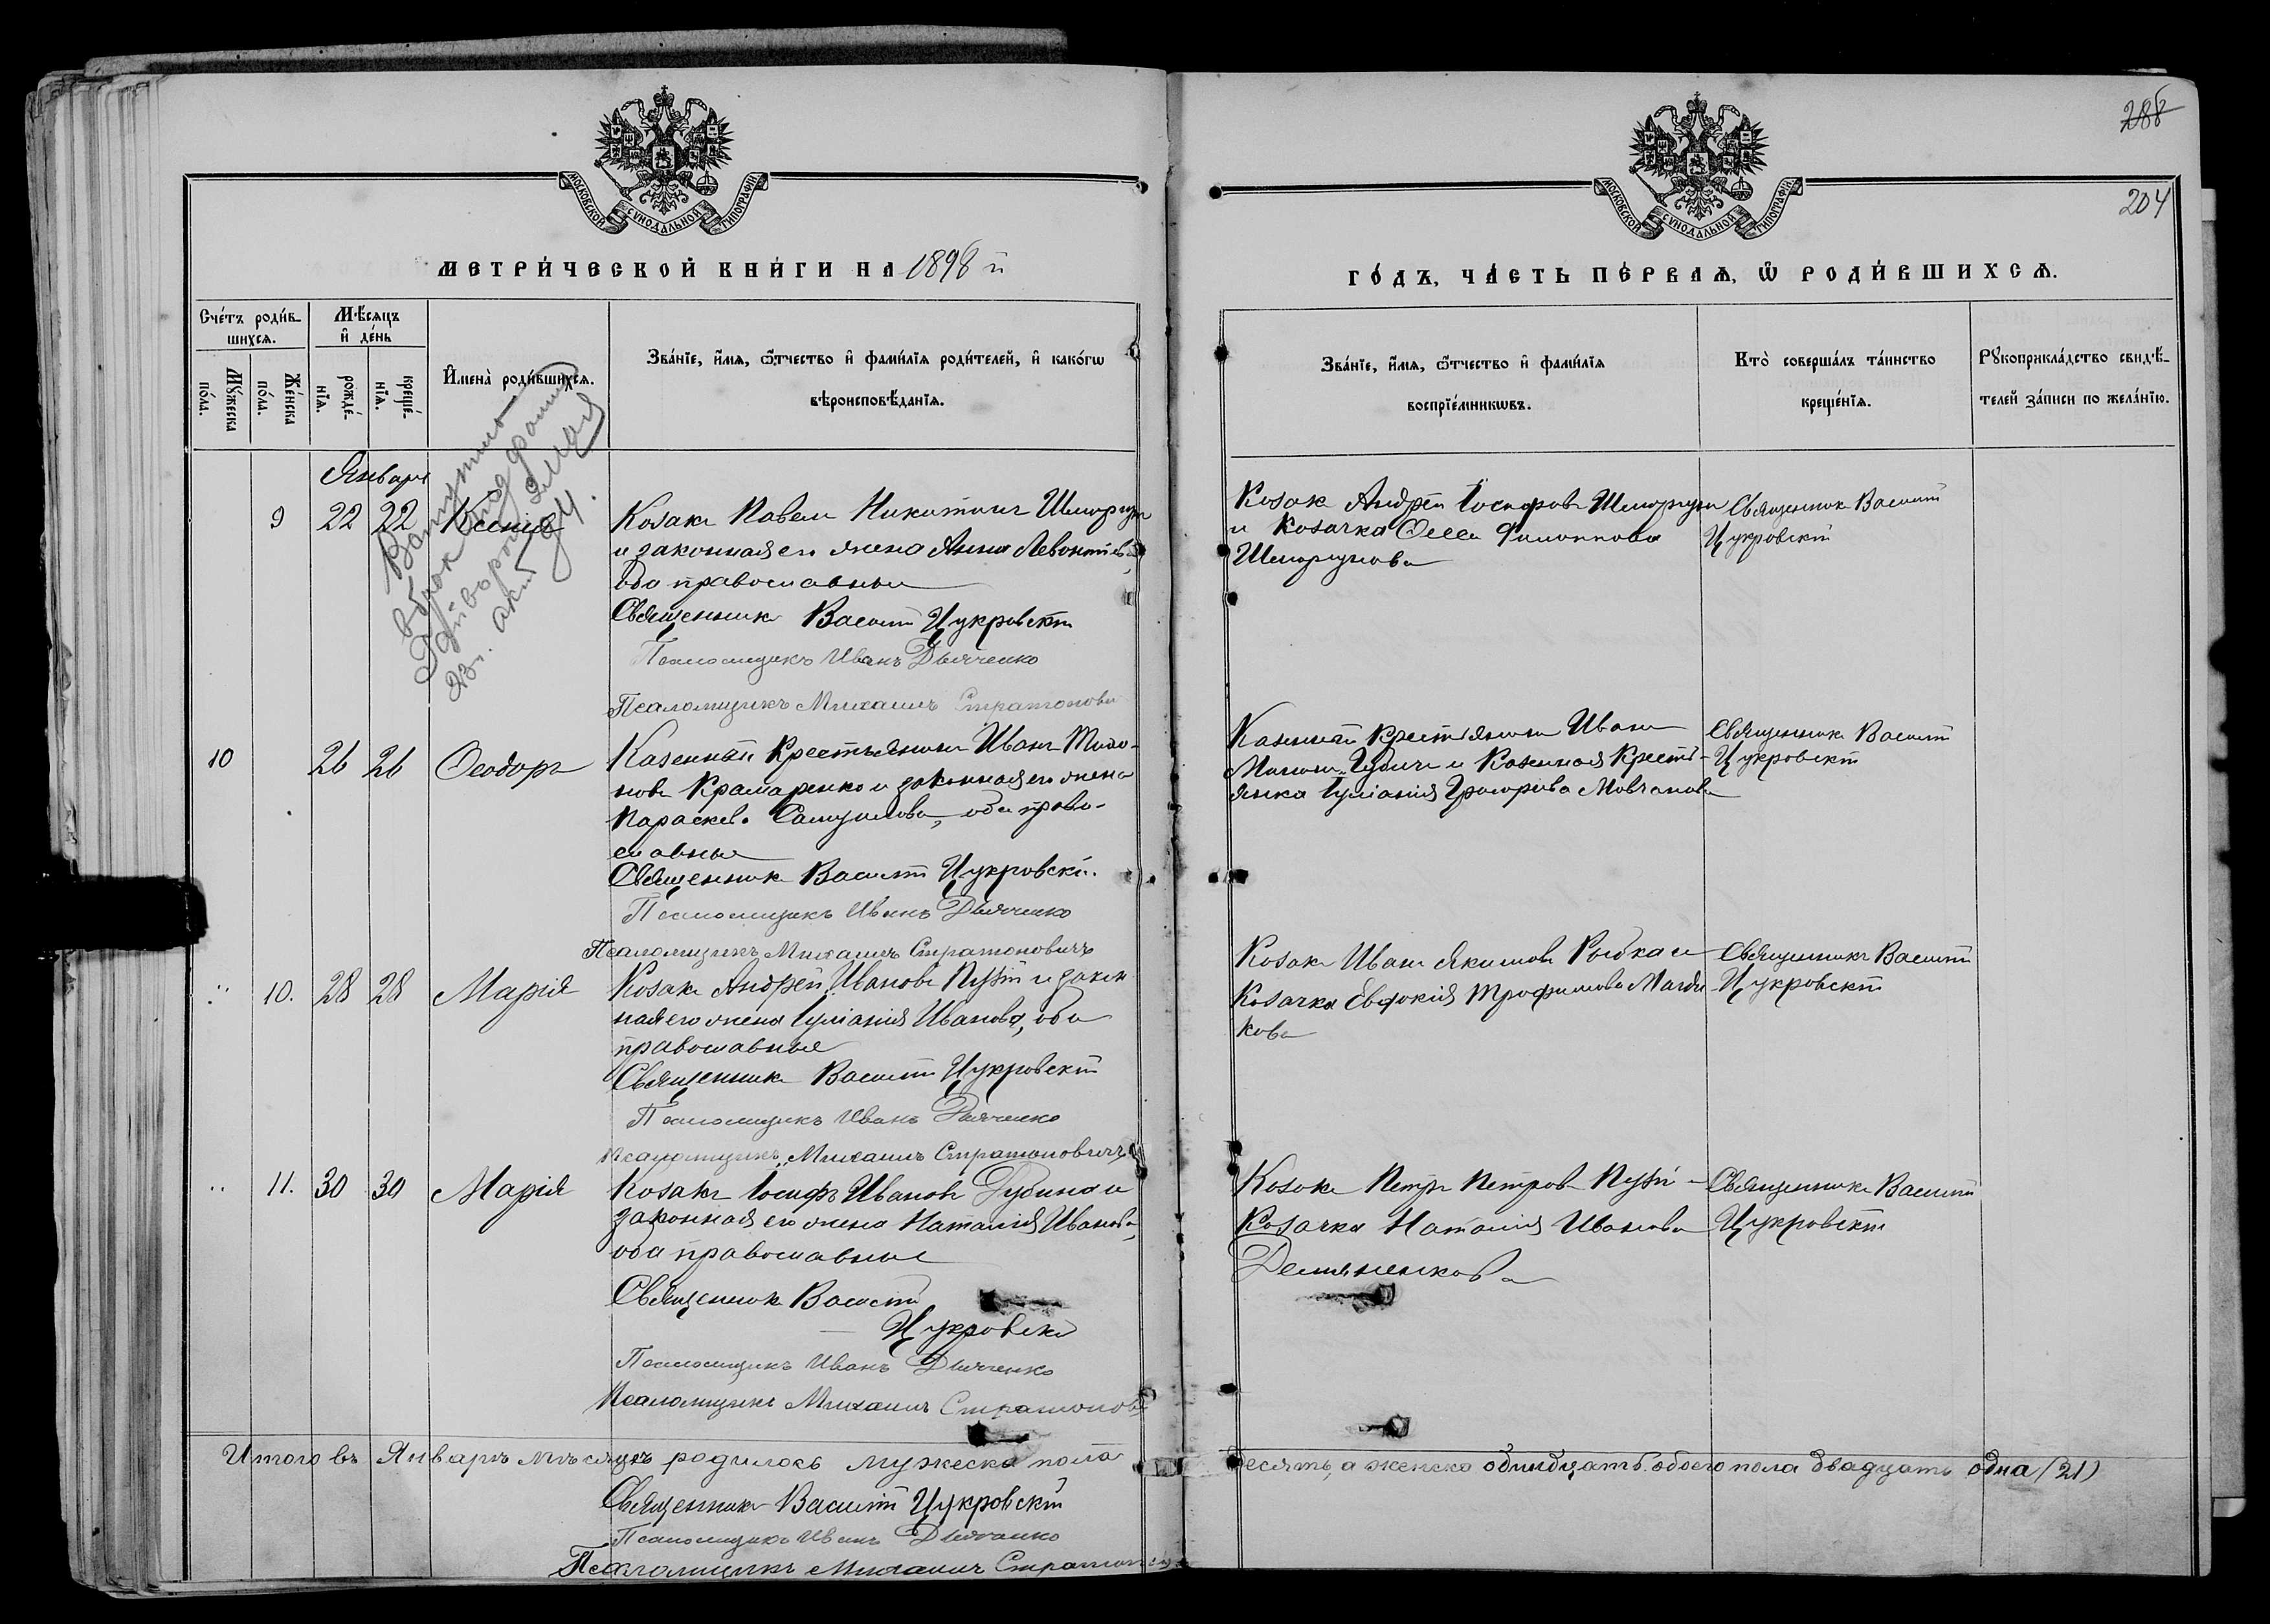 288
204
МОСКОВСКОЙ СУНОДАЛЬНОЙ ТИПОГРАФІИ
МОСКОВСКОЙ СУНОДАЛЬНОЙ ТИПОГРАФІИ
МЕТРИ́ЧЕСКОЙ КНИ́ГИ НА 1898 й
ГО́ДЪ, ЧА́СТЬ ПЕ́РВАѦ, Ѿ РОДИ́ВШИХСѦ.
Сче́тъ роди́в-
шихсѧ.
Мꙋ́жеска по́ла.
Же́нска по́ла.
Мѣ́сяцъ и҆ де́нь
рожде́-нїѧ.
креще́-нїѧ.
И҆мена̀ роди́вшихсѧ.
Зва́нїе, и҆́мѧ, ѻ҆́тчество и҆ фами́лїѧ роди́телей, и҆ како́гѡ
вѣроисповѣ́данїѧ.
Зва́нїе, и҆́мѧ, ѻ҆́тчество и҆ фами́лїѧ
воспрїе́мникѡвъ.
Кто̀ соверша́лъ та́инство
креще́нїѧ.
Рꙋкоприкла́дство свидѣ́-
телей за́писи по жела́нїю.
Января
9 22 22 Ксенія
Вступила
в брак под фамил
Козакъ Павелъ Никитинъ Шморгун
и законная его жена Анна Левонтіев
оба православные
Священникъ Василій Цукровскій
Псаломщикъ Иванъ Дьяченко
Псаломщикъ Михаилъ Стратонови
Козакъ Андрей Іосифовъ Шморгун
и Козачка Филиппова
Шморгунова
Священникъ Василій
Цукровскій
10 26 26 Ѳеодоръ
Казенный Крестьянинъ Иванъ Тихо-
новъ Крамаренко и законная его жена
Параскева Самуилова, оба право-
славные
Священникъ Василій Цукровскій
Псаломщикъ Иванъ Дьяченко
Псаломщикъ Михаилъ Стратоновичъ
Казенный Крестьянинъ Иванъ
и Казенная Кресть-
янка Іуліанія Григорьева Мовчанова
Священникъ Василій
Цукровскій
10. 28 28 Марія
Козакъ Андрей Ивановъ и закон
ная его жена Іуліанія Иванова, оба
православные
Священникъ Василій Цукровскій
Псаломщикъ Иванъ Дьяченко
Псаломщикъ Михаилъ Стратоновичъ
Козакъ Иванъ Якимовъ Рыбка и
Козачка Евдокія Трофимова
кова
Священникъ Василій
Цукровскій
11. 30 30 Марія
Козакъ Іосифъ Ивановъ Дубина и
законная его жена Наталія Иванова,
оба православные
Священникъ Василій
Цукровскій
Псаломщикъ Иванъ Дьяченко
Псаломщикъ Михаилъ Стратонов
Козакъ Петръ Петровъ
Козачка Наталія Иванова
Демяненкова
Священникъ Василій
Цукровскій
Итого въ Январѣ мѣсяцѣ родилось мужеска пола
десять, а женска одинадцать. обоего пола двадцать одна (21)
Священникъ Василій Цукровскій
Псаломщикъ Иванъ Дьяченко
Псаломщикъ Михаилъ Стратонов